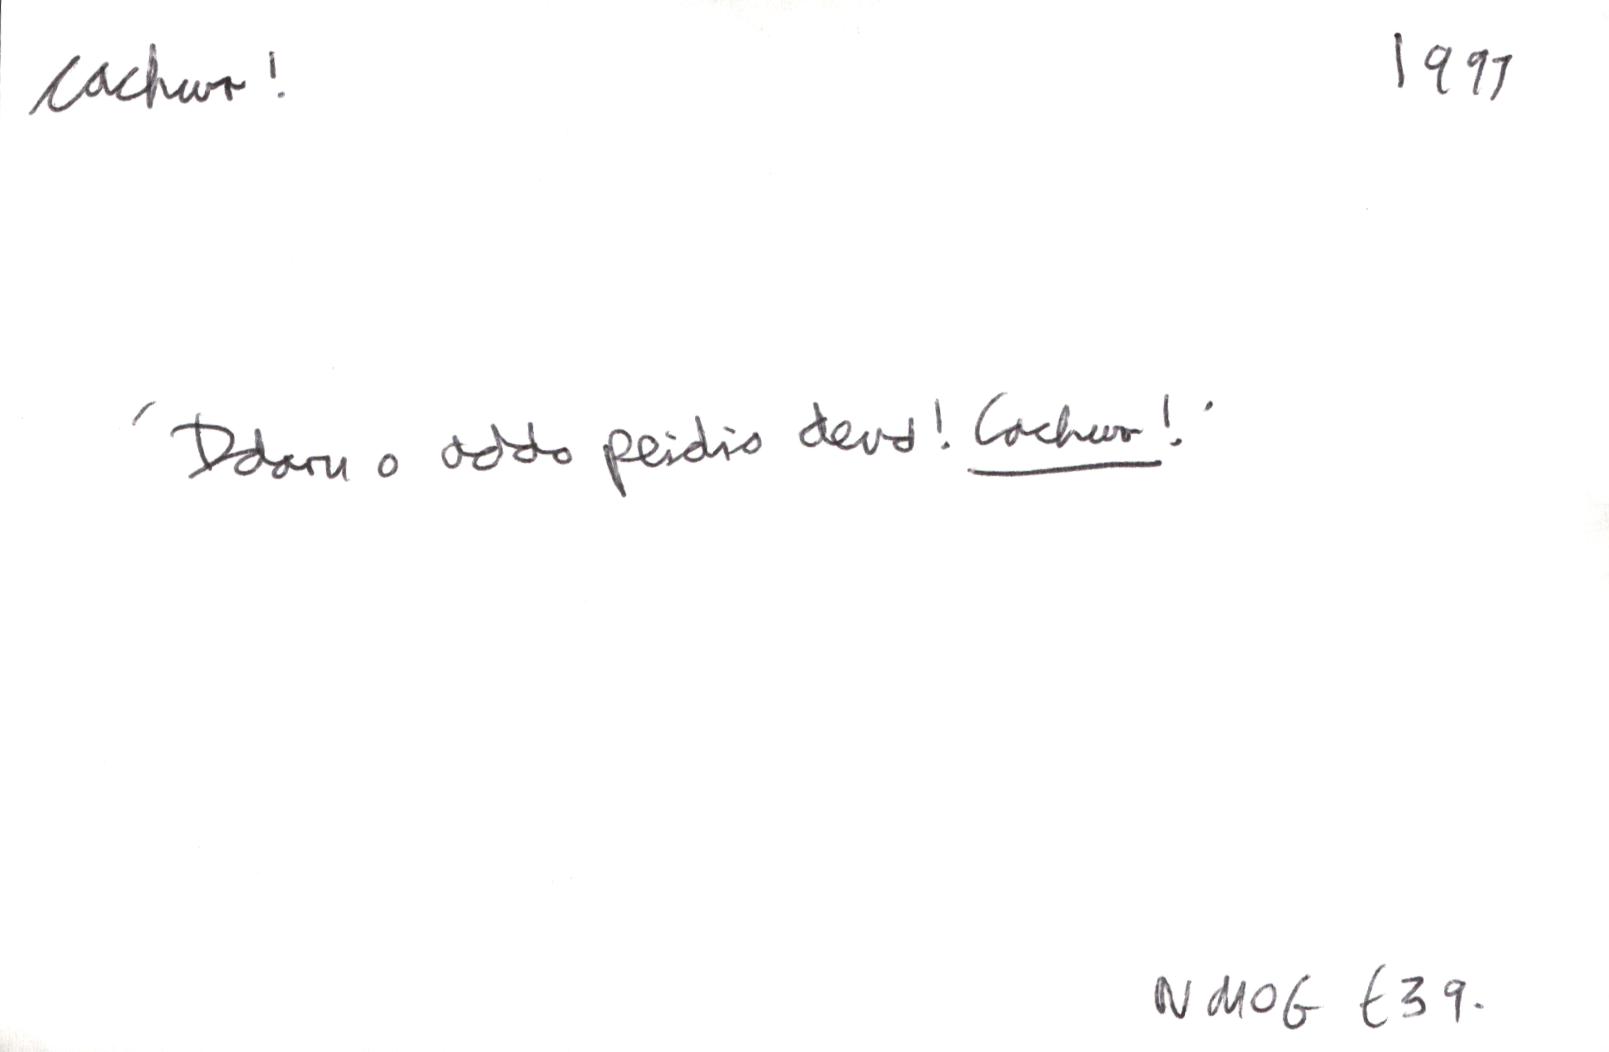 Cachwr! 1997
'Ddaru o addo peidio deud! Cachwr!'
NMOG t39.